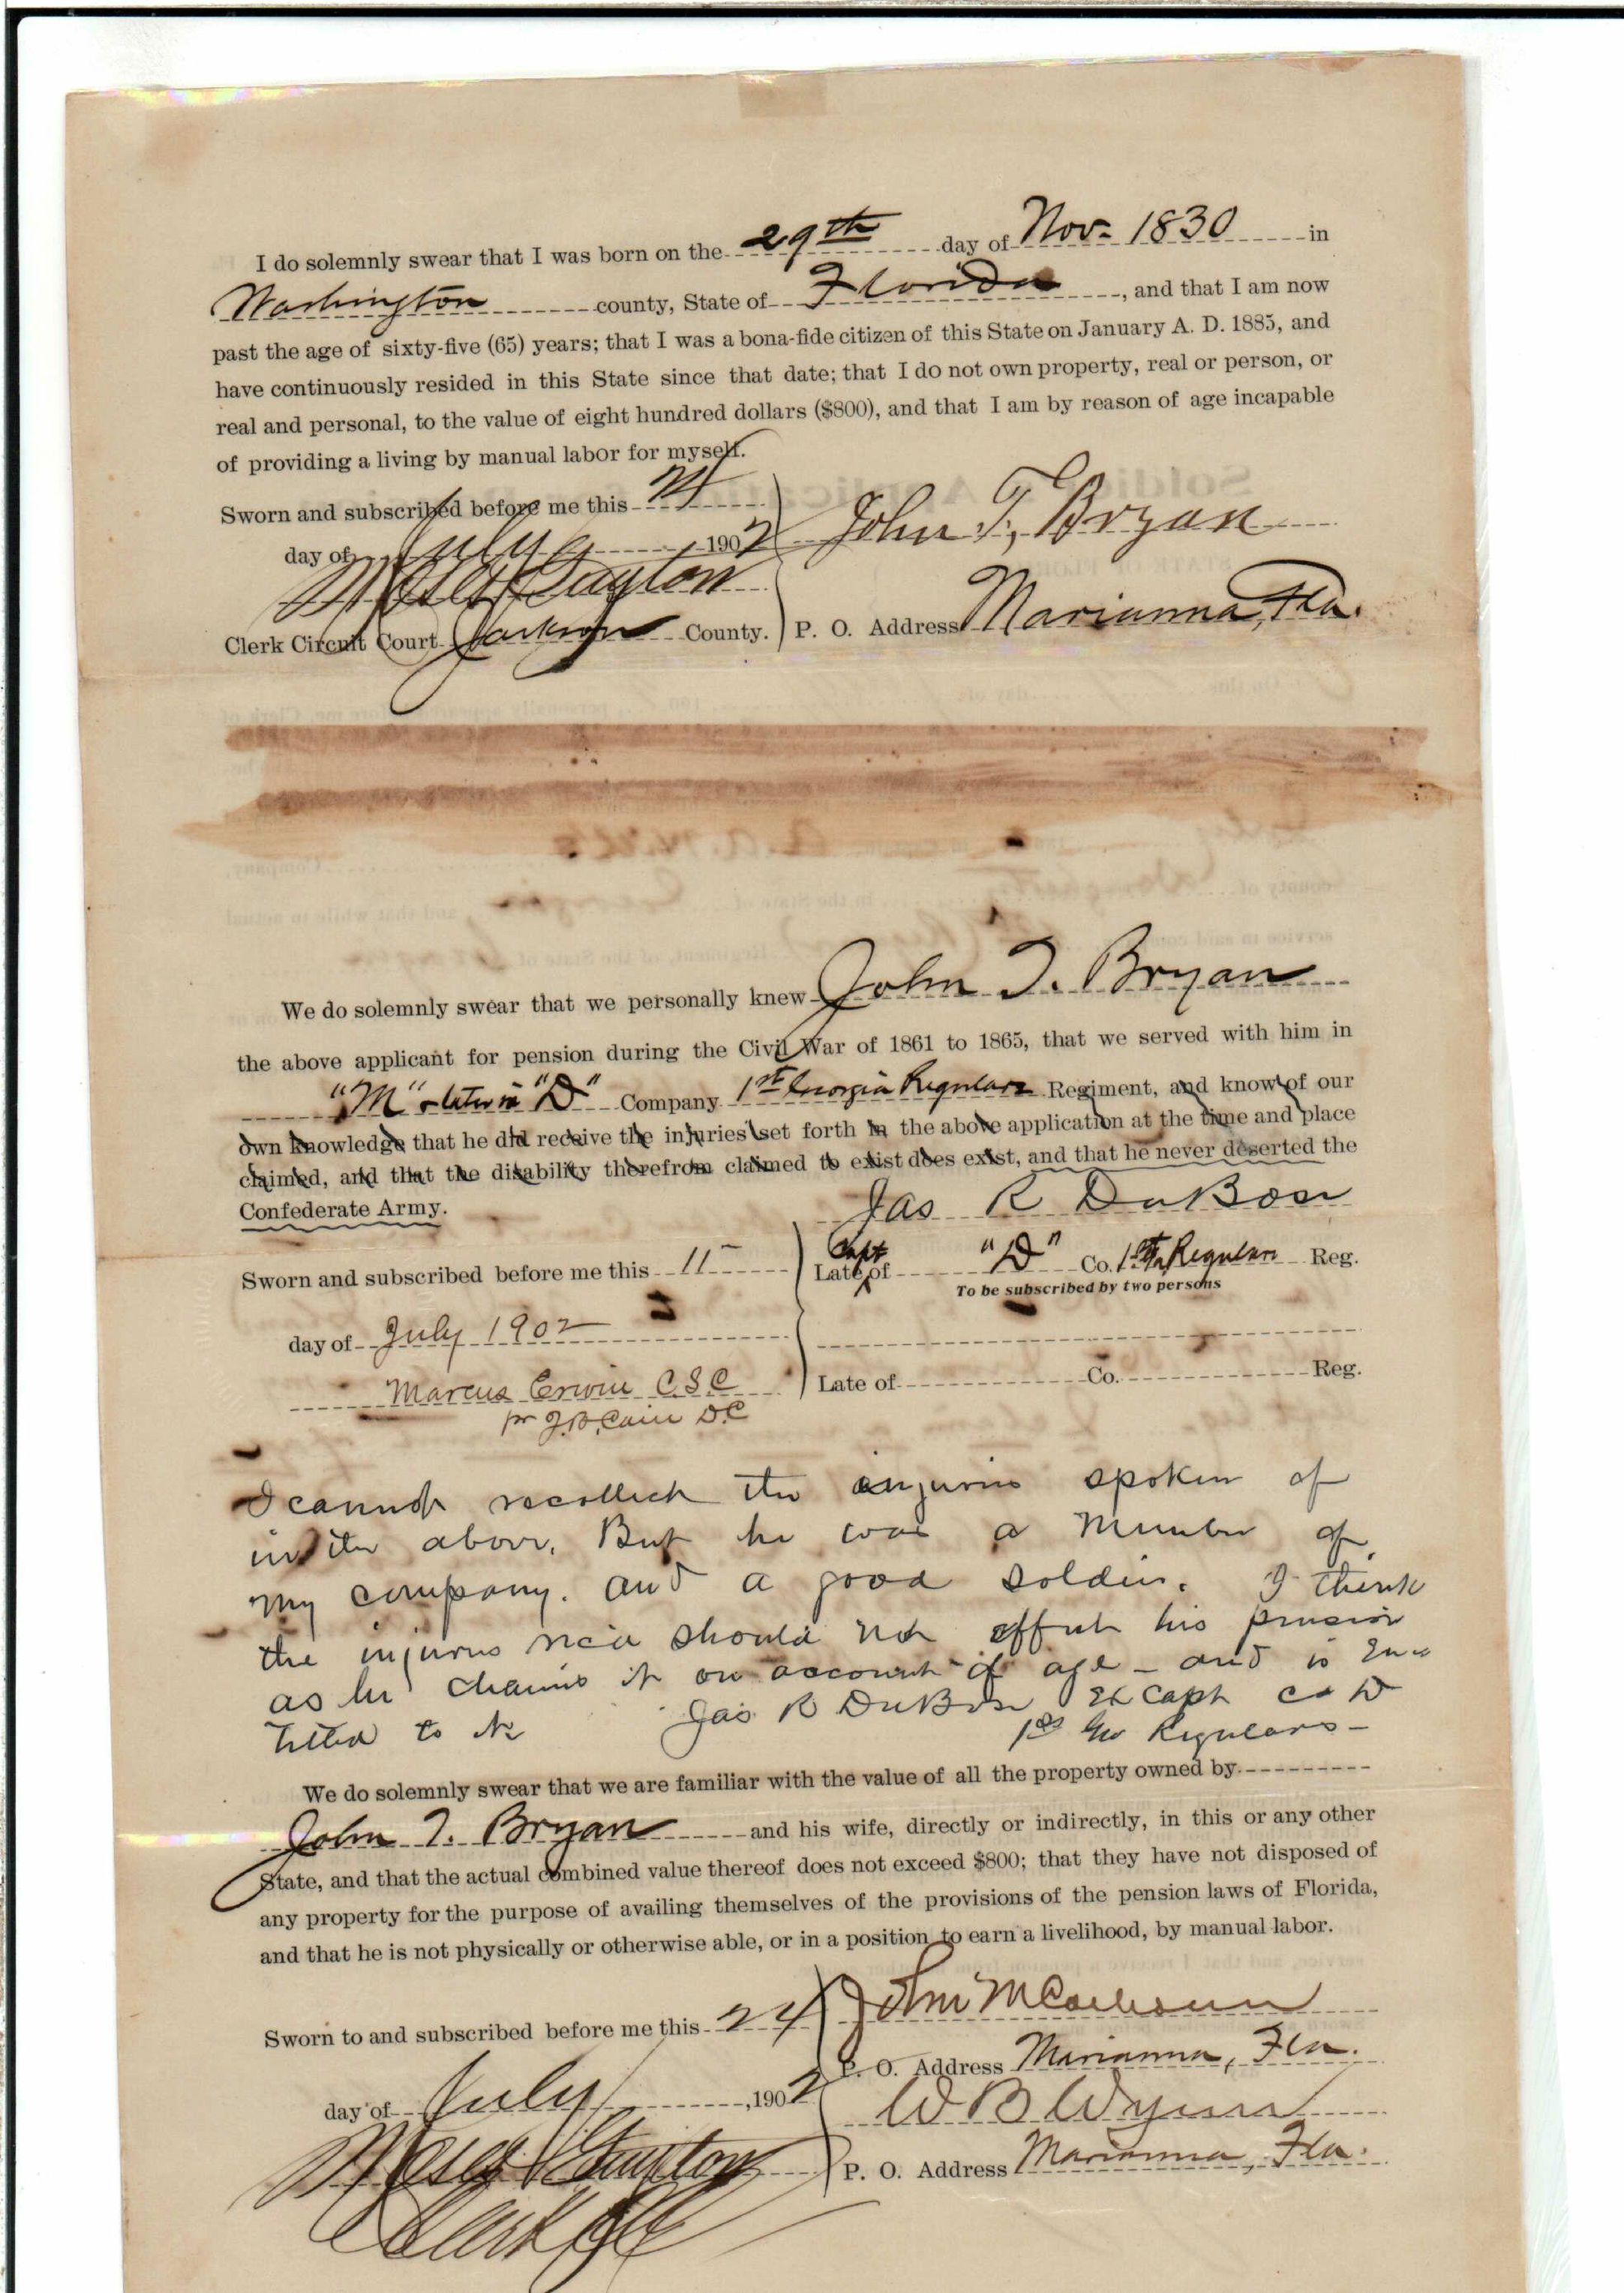 I do solemnly swear that I was born on the 29th day of Nov. 1830 in
Washington county, State of Florida, and that I am now
past the age of sixty-five (65) years; that I was a bona-fide citizen of this State on January A. D. 1885, and
have continuously resided in this State since that date; that I do not own property, real or person, or
real and personal, to the value of eight hundred dollars ($800), and that I am by reason of age incapable
of providing a living by manual labor for myself.
Sworn and subscribed before me this 24
day of July 1902
John T. Bryan
Moses Guyton
Clerk Circuit Court Jackson County.
P. O. Address Marianna, Fla.
We do solemnly swear that we personally knew John T. Bryan
the above applicant for pension during the Civil War of 1861 to 1865, that we served with him in
"M" & later in "D" Company 1st Georgia Regulars Regiment, and know of our
own knowledge that he did receive the injuries set forth in the above application at the time and place
claimed, and that the disability therefrom claimed to exist does exist, and that he never deserted the
Confederate Army.
Jas R DuBose
Sworn and subscribed before me this 11
Capt
Late of "D" Co. 1st Regulars Reg.
To be subscribed by two persons
day of July 1902
Marcus Erwin C.S.C
pr J.B. Cain D.C
Late of Co. Reg.
I cannot recollect the injuries spoken of
in the above. But he was a Member of
my company. and a good soldier. I think
the injuries should not effect his pension
as he claims it on account of age - and is En-
titled to it
Jas R DuBose Ex Capt Co D
1st Geo Regulars -
We do solemnly swear that we are familiar with the value of all the property owned by
John T. Bryan and his wife, directly or indirectly, in this or any other
State, and that the actual combined value thereof does not exceed $800; that they have not disposed of
any property for the purpose of availing themselves of the provisions of the pension laws of Florida,
and that he is not physically or otherwise able, or in a position to earn a livelihood, by manual labor.
Sworn to and subscribed before me this 24
John M Calhoun
P. O. Address Marianna, Fla.
day of July, 1902
W B Wynn
Moses Guyton
P. O. Address Marianna, Fla.
Clerk